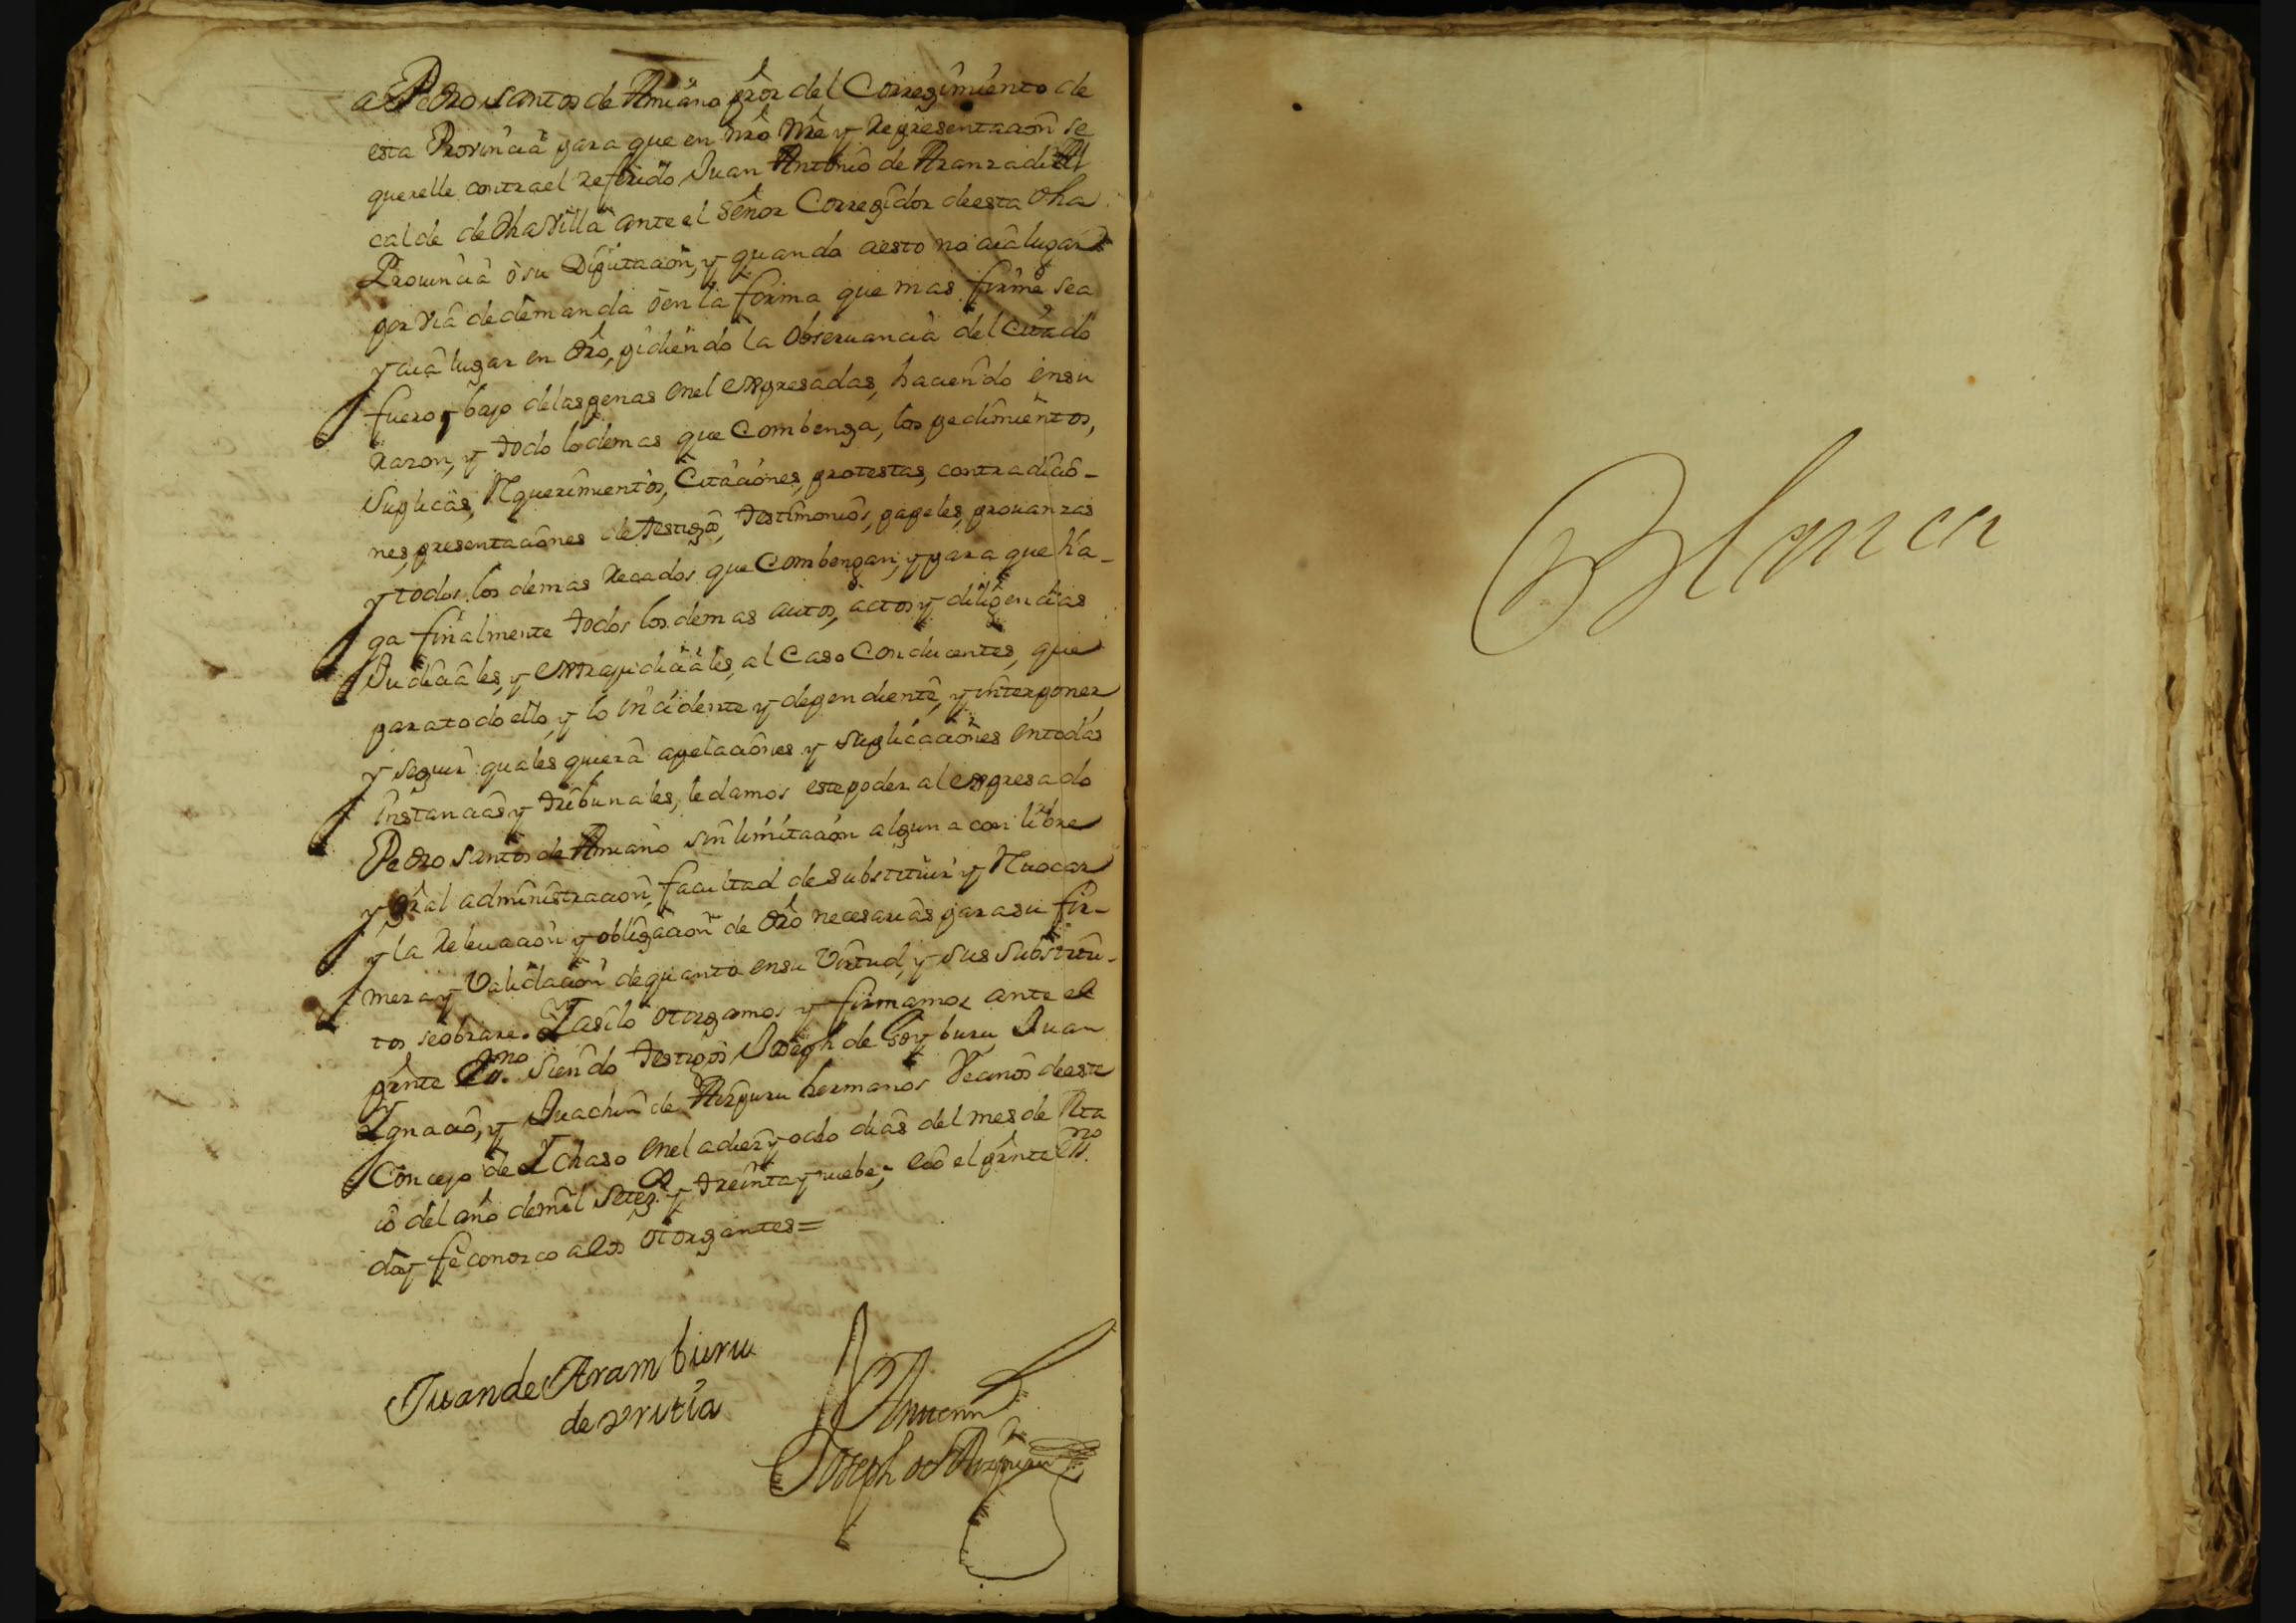 a Pedro Santos de Amiano pror del Corregimiento de
esta Provincia para que en nro nre y representacion se
querelle contra el referido Juan Antonio de Aranzadi Al
calde de dha villa ante el Señor Corregidor de esta dha
Provincia ô su Diputacion, y quando aesto no aia lugar
por via de demanda ô en la forma que mas firme sea
y aia lugar en dro, pidiendo la observancia del citado
fuero y bajo de las penas en el expresadas, haciendo en su
razon, y todo lo demas que combenga, los pedimientos,
Suplicas, Requerimientos, Citaciones, protestas, contradicio-
nes, presentaciones de testigos, testimonios, papeles, provanzas
y todos los demas recados que combengan, y para que ha-
ga finalmente todos los demas autos, actos y diligencias
Judiciales, y extrajudiciales, al caso conducentes, que
para todo ello, y lo incidente y dependiente, y interponer
y seguir quales quiera apelaciones y suplicaciones en todas
instancias y tribunales, le damos este poder al expresado
Pedro Santos de Amiano sin limitacion alguna con libre
y gral administracion, facultad de substituir y Revocar
y la relevacion y obligacion de dro necesarias para su fir-
meza y validacion de quanto en su virtud, y sus substitu-
tos se obrare. Y asi lo otorgamos y firmamos ante el
prnte Essno siendo testigos Joseph de Goyburu, Juan
Ygnacio, y Juachin de Aizpuru hermanos vecinos de este
Concejo de Ychaso en el a diez y ocho dias del mes de
io del año de mil setezs y treinta y nuebe; e io el prnte Essno
doy fe conozco a los otorgantes=
Juan de Aramburu
de Vrutia
Ante mi
Joseph de Aizpuru
Blanca